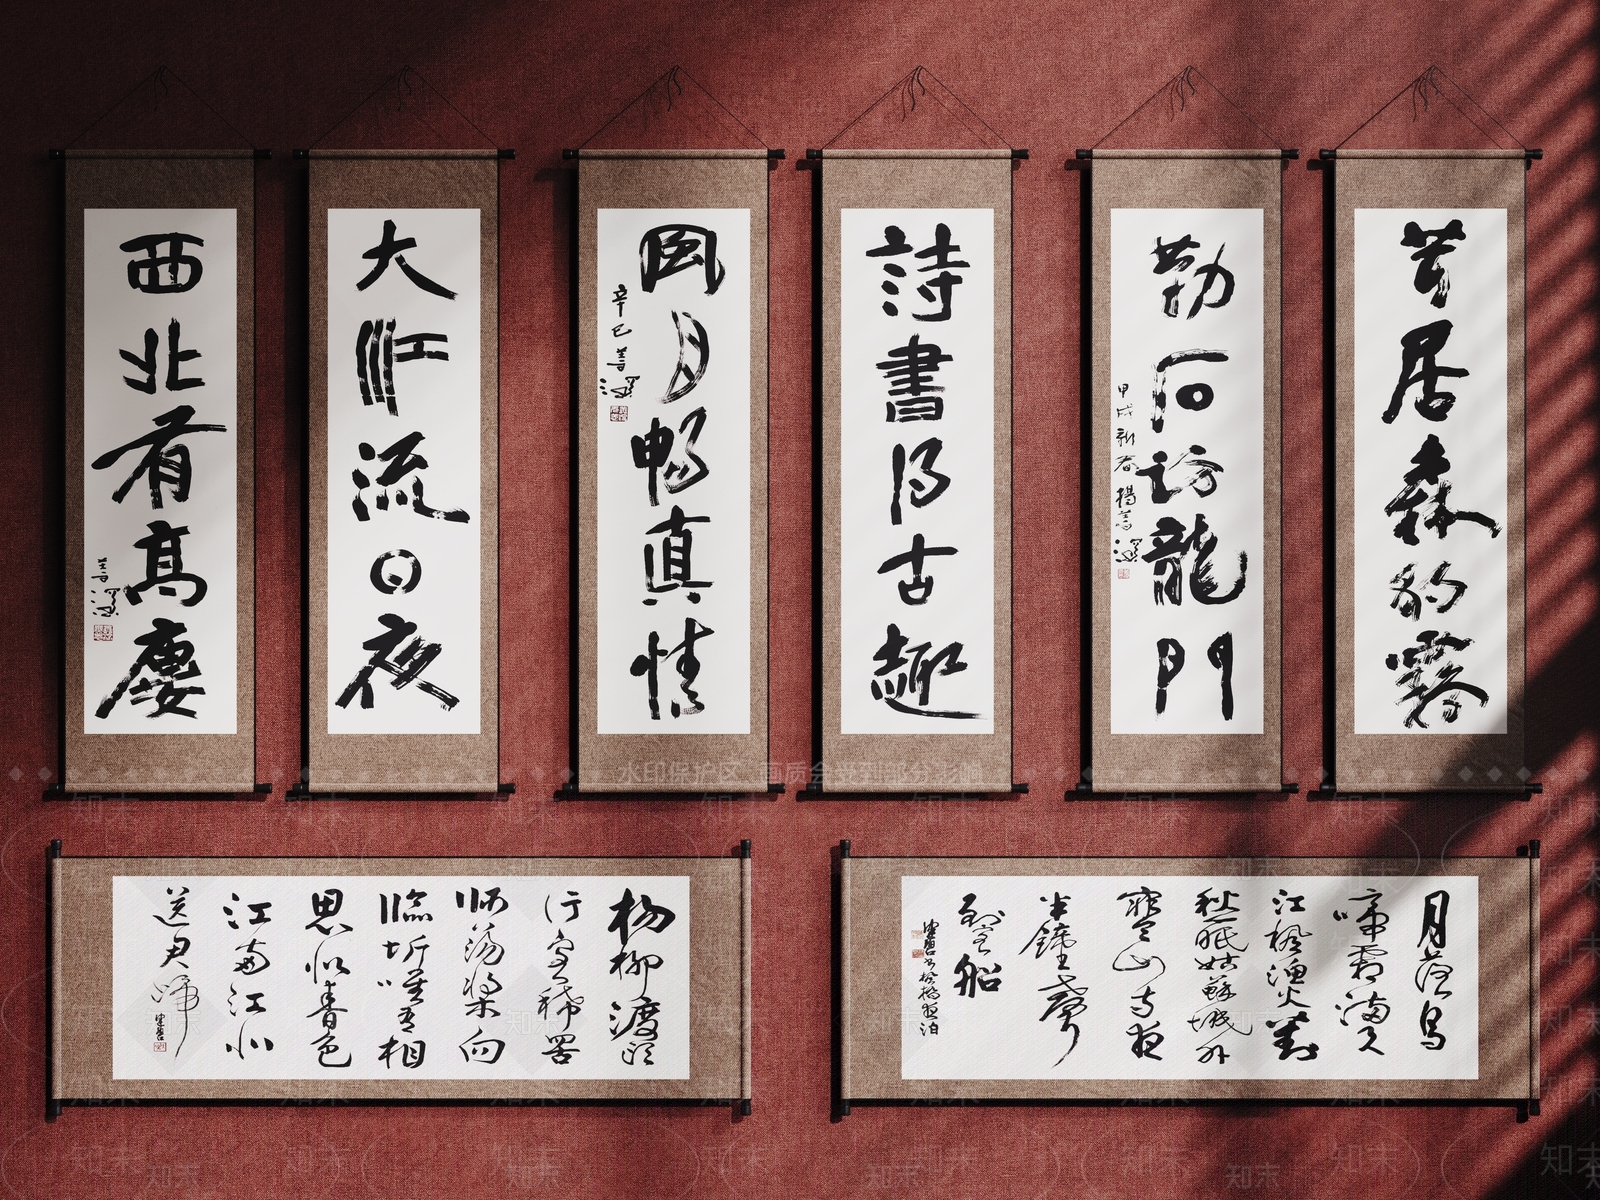 大江流日夜
西北有高廔
善深
詩書得古趣
風月暢真情
辛巳善深
昔居森豹霧
勒石訪龍門
甲戌新春楊善深
水印保护区 画质会受到部分影响
楊柳渡頭
行客稀罟
師蕩槳向
臨圻唯有相
思似春色
江南江北
送君歸
月落烏
啼霜滿天
江楓漁火對
愁眠姑蘇城外
寒山寺夜
半鐘聲
到客船
知末